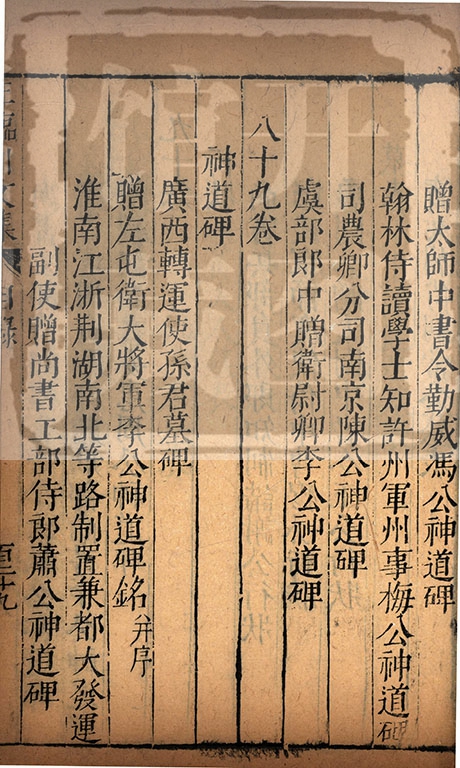 贈太師中書令勤威馮公神道碑
翰林侍讀學士知許州軍州事梅公神道碑
司農卿分司南京陳公神道碑
虞部郎中贈衛尉卿李公神道碑
八十九卷
神道碑
廣西轉運使孫君墓碑
贈左屯衛大將軍李公神道碑銘并序
淮南江浙荆湖南北等路制置兼都大發運
副使贈尚書工部侍郎蕭公神道碑
王臨川文集 目錄 百二十九